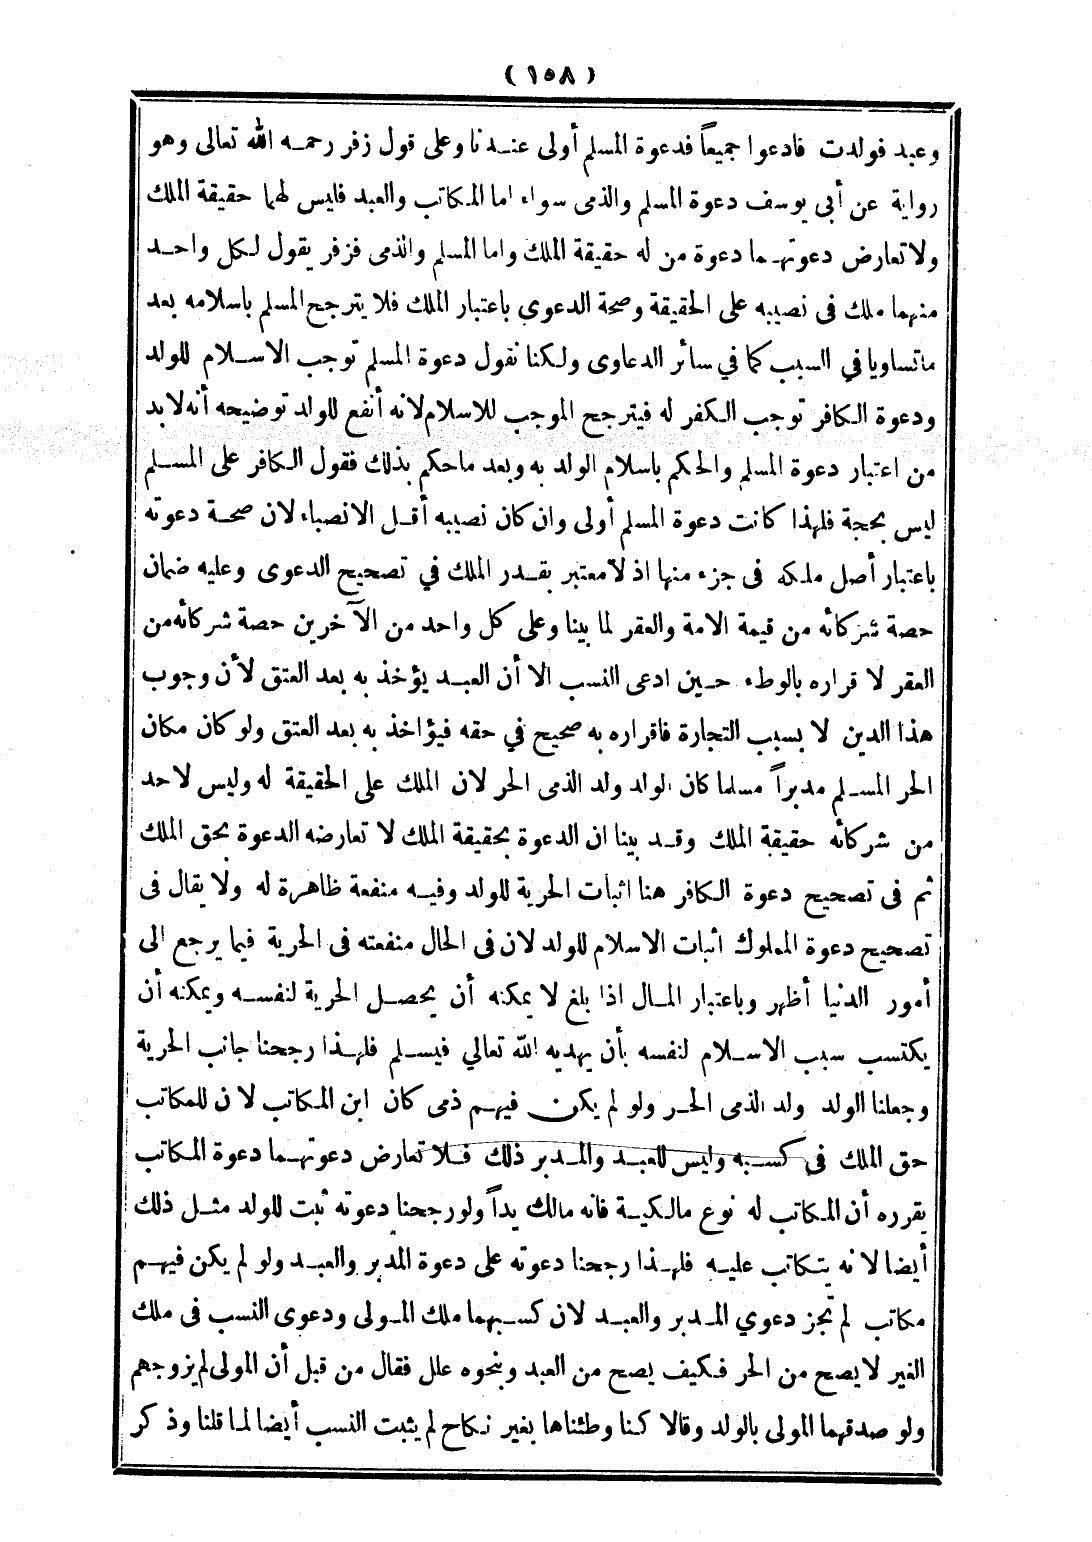 (١٥٨)
وعبد فولدت فادعوا جميعاً فدعوة المسلم أولى عندنا وعلى قول زفر رحمه الله تعالى وهو
رواية عن أبي يوسف دعوة المسلم والذمى سواء اما المكاتب والعبد فليس لهما حقيقة الملك
ولا تعارض دعوتهما دعوة من له حقيقة الملك واما المسلم والذمى فزفر يقول لكل واحد
منهما ملك فى نصيبه على الحقيقة وصحة الدعوى باعتبار الملك فلا يترجح المسلم باسلامه بعد
ماتساويا في السبب كما في سائر الدعاوى ولكنا نقول دعوة المسلم توجب الاسلام للولد
ودعوة الكافر توجب الكفر له فيترجح الموجب للاسلام لانه أنفع للولد توضيحه أنه لابد
من اعتبار دعوة المسلم والحكم باسلام الولد به وبعد ماحكم بذلك فقول الكافر على المسلم
ليس بحجة فلهذا كانت دعوة المسلم أولى وان كان نصيبه أقل الانصباء لان صحة دعوته
باعتبار أصل ملكه فى جزء منها اذ لامعتبر بقدر الملك في تصحيح الدعوى وعليه ضمان
حصة شركائه من قيمة الامة والعقر لما بينا وعلى كل واحد من الآخرين حصة شركائه من
العقر لا قراره بالوطء حين ادعى النسب الا أن العبد يؤخذ به بعد العتق لأن وجوب
هذا الدين لا بسبب التجارة فاقراره به صحيح في حقه فيؤاخذ به بعد العتق ولو كان مكان
الحر المسلم مدبراً مسلما كان الولد ولد الذمى الحر لان الملك على الحقيقة له وليس لاحد
من شركائه حقيقة الملك وقد بينا ان الدعوة بحقيقة الملك لا تعارضه الدعوة بحق الملك
ثم فى تصحيح دعوة الكافر هنا اثبات الحرية للولد وفيه منفعة ظاهرة له ولا يقال فى
تصحيح دعوة المملوك اثبات الاسلام للولد لان فى الحال منفعته فى الحرية فيما يرجع الى
أمور الدنيا أظهر وباعتبار المال اذا بلغ لا يمكنه أن يحصل الحرية لنفسه ويمكنه أن
يكتسب سبب الاسلام لنفسه بأن يهديه الله تعالي فيسلم فلهذا رجحنا جانب الحرية
وجعلنا الولد ولد الذمى الحر ولو لم يكن فيهم ذمى كان ابن المكاتب لان للمكاتب
حق الملك فى كسبه وليس للعبد والمدبر ذلك فلا تعارض دعوتهما دعوة المكاتب
يقرره أن المكاتب له نوع مالكية فانه مالك يداً ولو رجحنا دعوته ثبت للولد مثل ذلك
أيضا لانه يتكاتب عليه فلهذا رجحنا دعوته على دعوة المدبر والعبد ولو لم يكن فيهم
مكاتب لم تجز دعوي المدبر والعبد لان كسبهما ملك المولى ودعوى النسب فى ملك
الغير لا يصح من الحر فكيف يصح من العبد وبنحوه علل فقال من قبل أن المولى لم يزوجهم
ولو صدقهما المولى بالولد وقالا كنا وطئناها بغير نكاح لم يثبت النسب أيضا لما قلنا وذكر